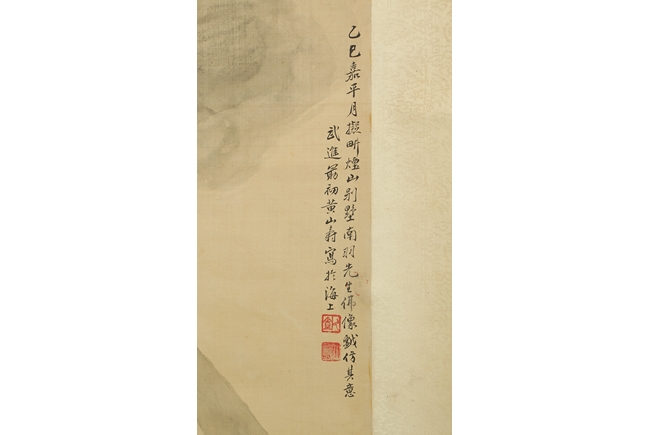 乙巳嘉平月擬畊煙山別墅南羽先生佛像戲仿其意
武進勗初黃山壽寫於海上